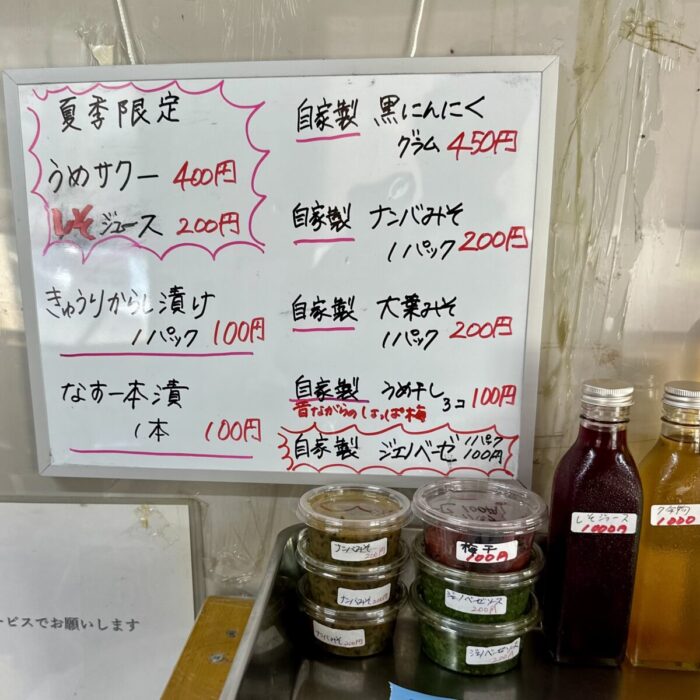 夏季限定
うめサワー 400円
しそジュース 200円
きゅうりからし漬け
1パック 100円
なす一本漬
1本 100円
自家製 黒にんにく
グラム 450円
自家製 ナンバみそ
1パック 200円
自家製 大葉みそ
1パック 200円
自家製 うめ干し 3コ 100円
昔ながらのしょっぱ梅
自家製 ジェノベーゼ 1パック 100円
ービスでお願いします
ナンバみそ
200円
ナンバみそ
200円
ナンバみそ
200円
梅干
100円
ジェノベーゼソース
200円
ジェノベーゼソース
200円
しそジュース
1000円
1000